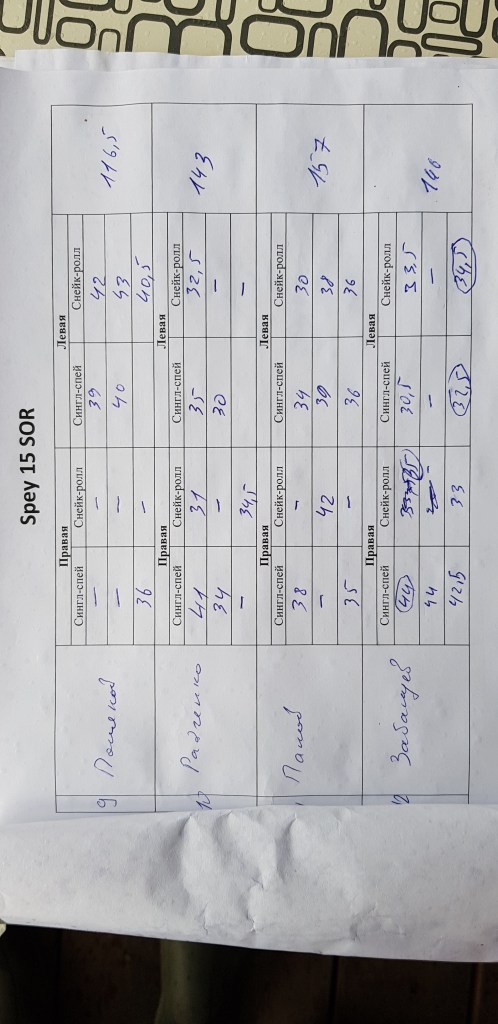 Spey 15 SOR
Правая Левая
Сингл-спей Снейк-ролл Сингл-спей Снейк-ролл
9 Поляков 116,5
— — 39 42
— — 40 43
36 — 40,5
Правая Левая
Сингл-спей Снейк-ролл Сингл-спей Снейк-ролл
10 Радченко 143
41 31 35 32,5
34 — 30 —
— 34,5 —
Правая Левая
Сингл-спей Снейк-ролл Сингл-спей Снейк-ролл
Панов 157
38 — 34 30
— 42 39 38
35 — 36 36
Правая Левая
Сингл-спей Снейк-ролл Сингл-спей Снейк-ролл
12 146
44 35 30,5 33,5
44 — —
42,5 33 32,5 34,5